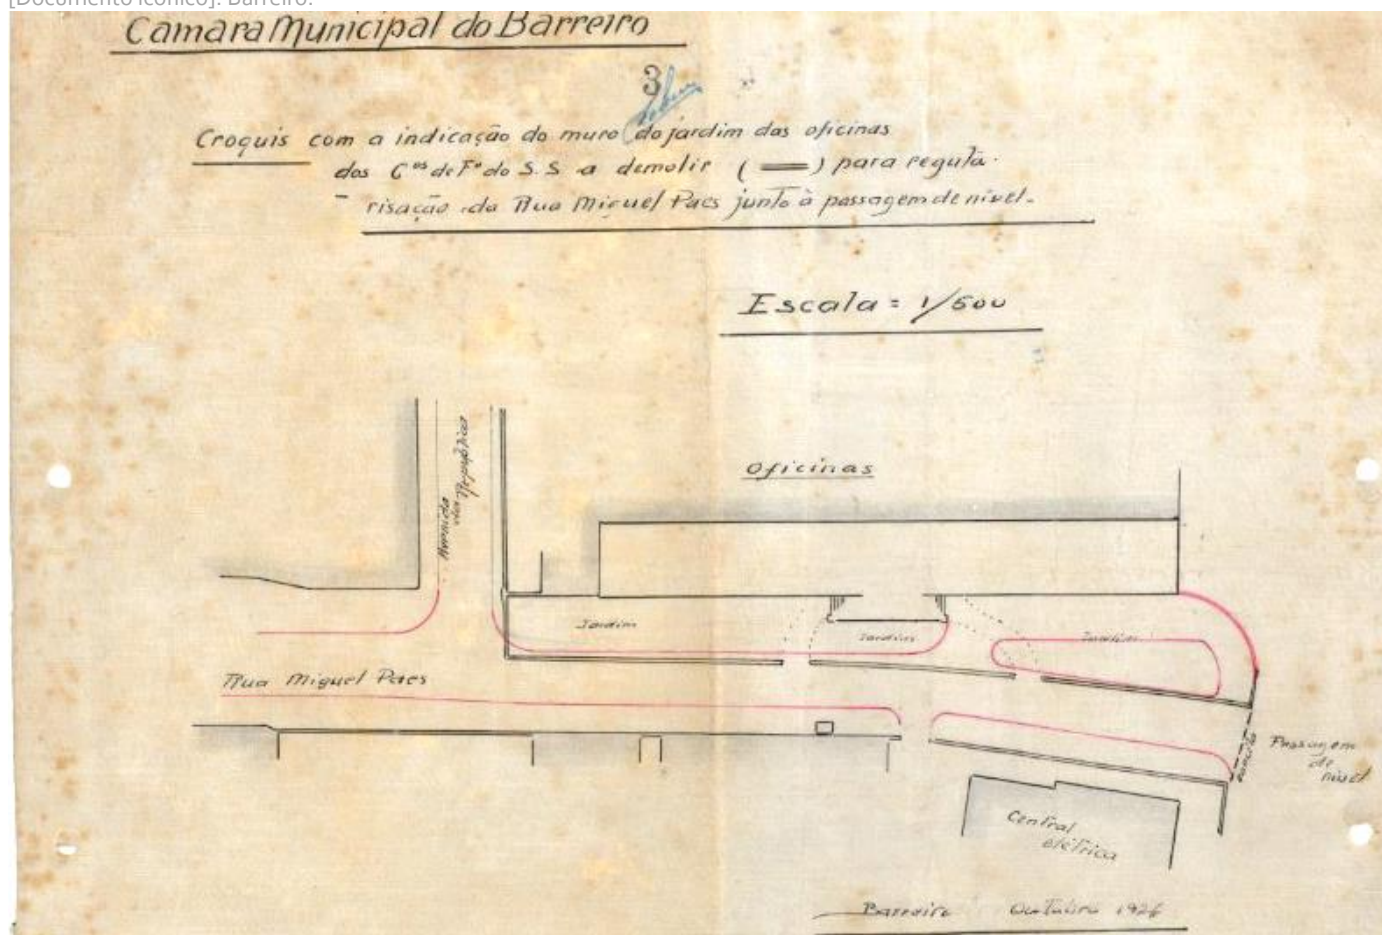 [Documento icónico]. Barreiro.
Camara Municipal do Barreiro
3
Croquis com a indicação do muro do jardim das oficinas
dos C.os de F.o do S. S. a demolir ( ═ ) para regula-
risação da Rua Miguel Paes junto à passagem de nível.
Escala = 1/500
Avenida
da República
Oficinas
Jardim
Jardim
Jardim
Rua Miguel Paes
Passagem
de
nível
cancela
Central
elétrica
Barreiro Outubro 1926